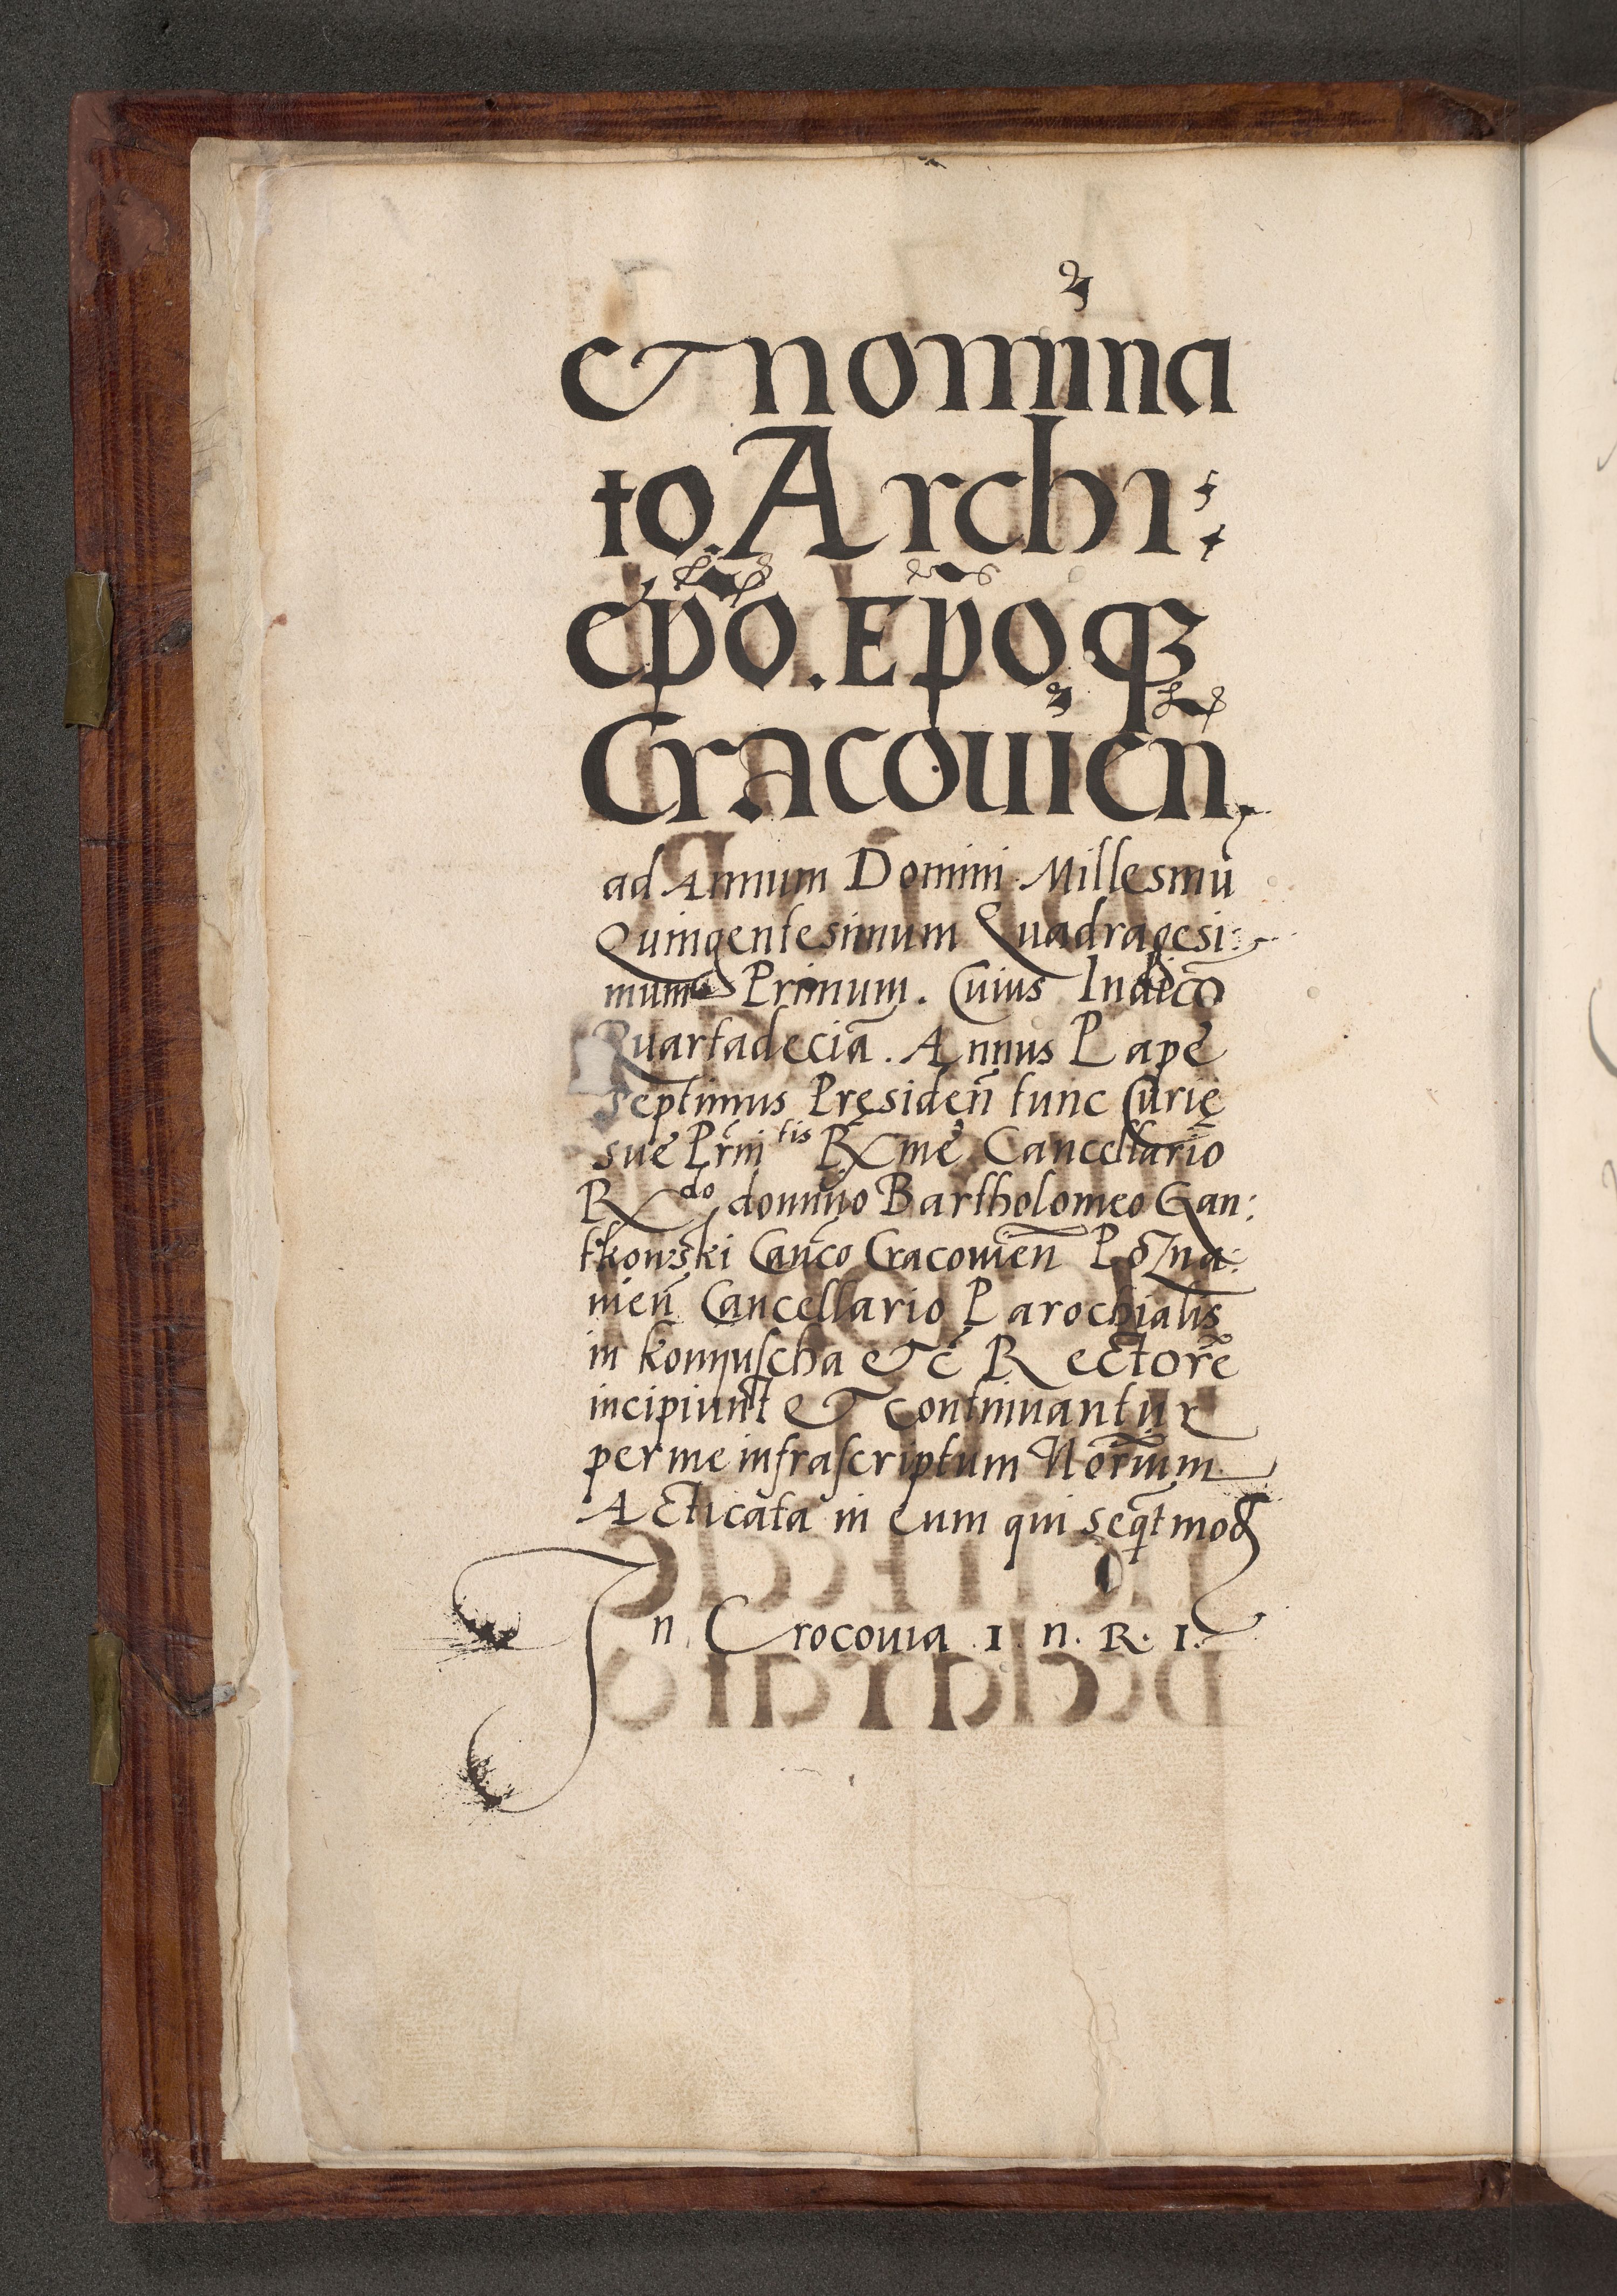 & nomina
to. Archi:
ep̃o. Ep̃oqȝ
Cracouien̄.
ad Annum Domini Millesimū
Quingentesimum Quadragesi:
mum Primum. Cuius Indicō
Quartadecīa. Annus Pape
Septimus Pręsiden̄ tunc Curię
sue Pr̄nitis Rx̄me Cancellario
Rxdo domino Bartholomeo Gan:
tkowski Can̄co Cracouien̄ Pozna:
nien̄ Cancellario Parochialis
in konyuſcha &c̄ Rectore
incipiunt & continuantur
per me infraſcriptum Norīum
Acticata in eum qui seqt̄ mod
o
In Crocouia I. n. R. I.